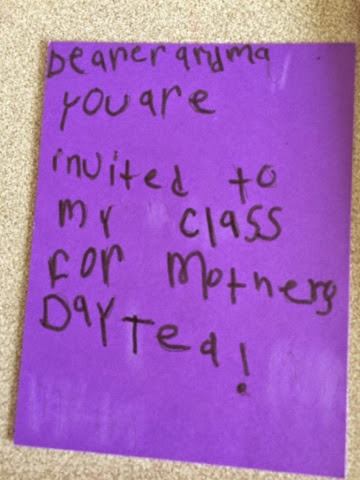 Dear Grandma
you are
invited to
my class
For Mothers
Day Tea!